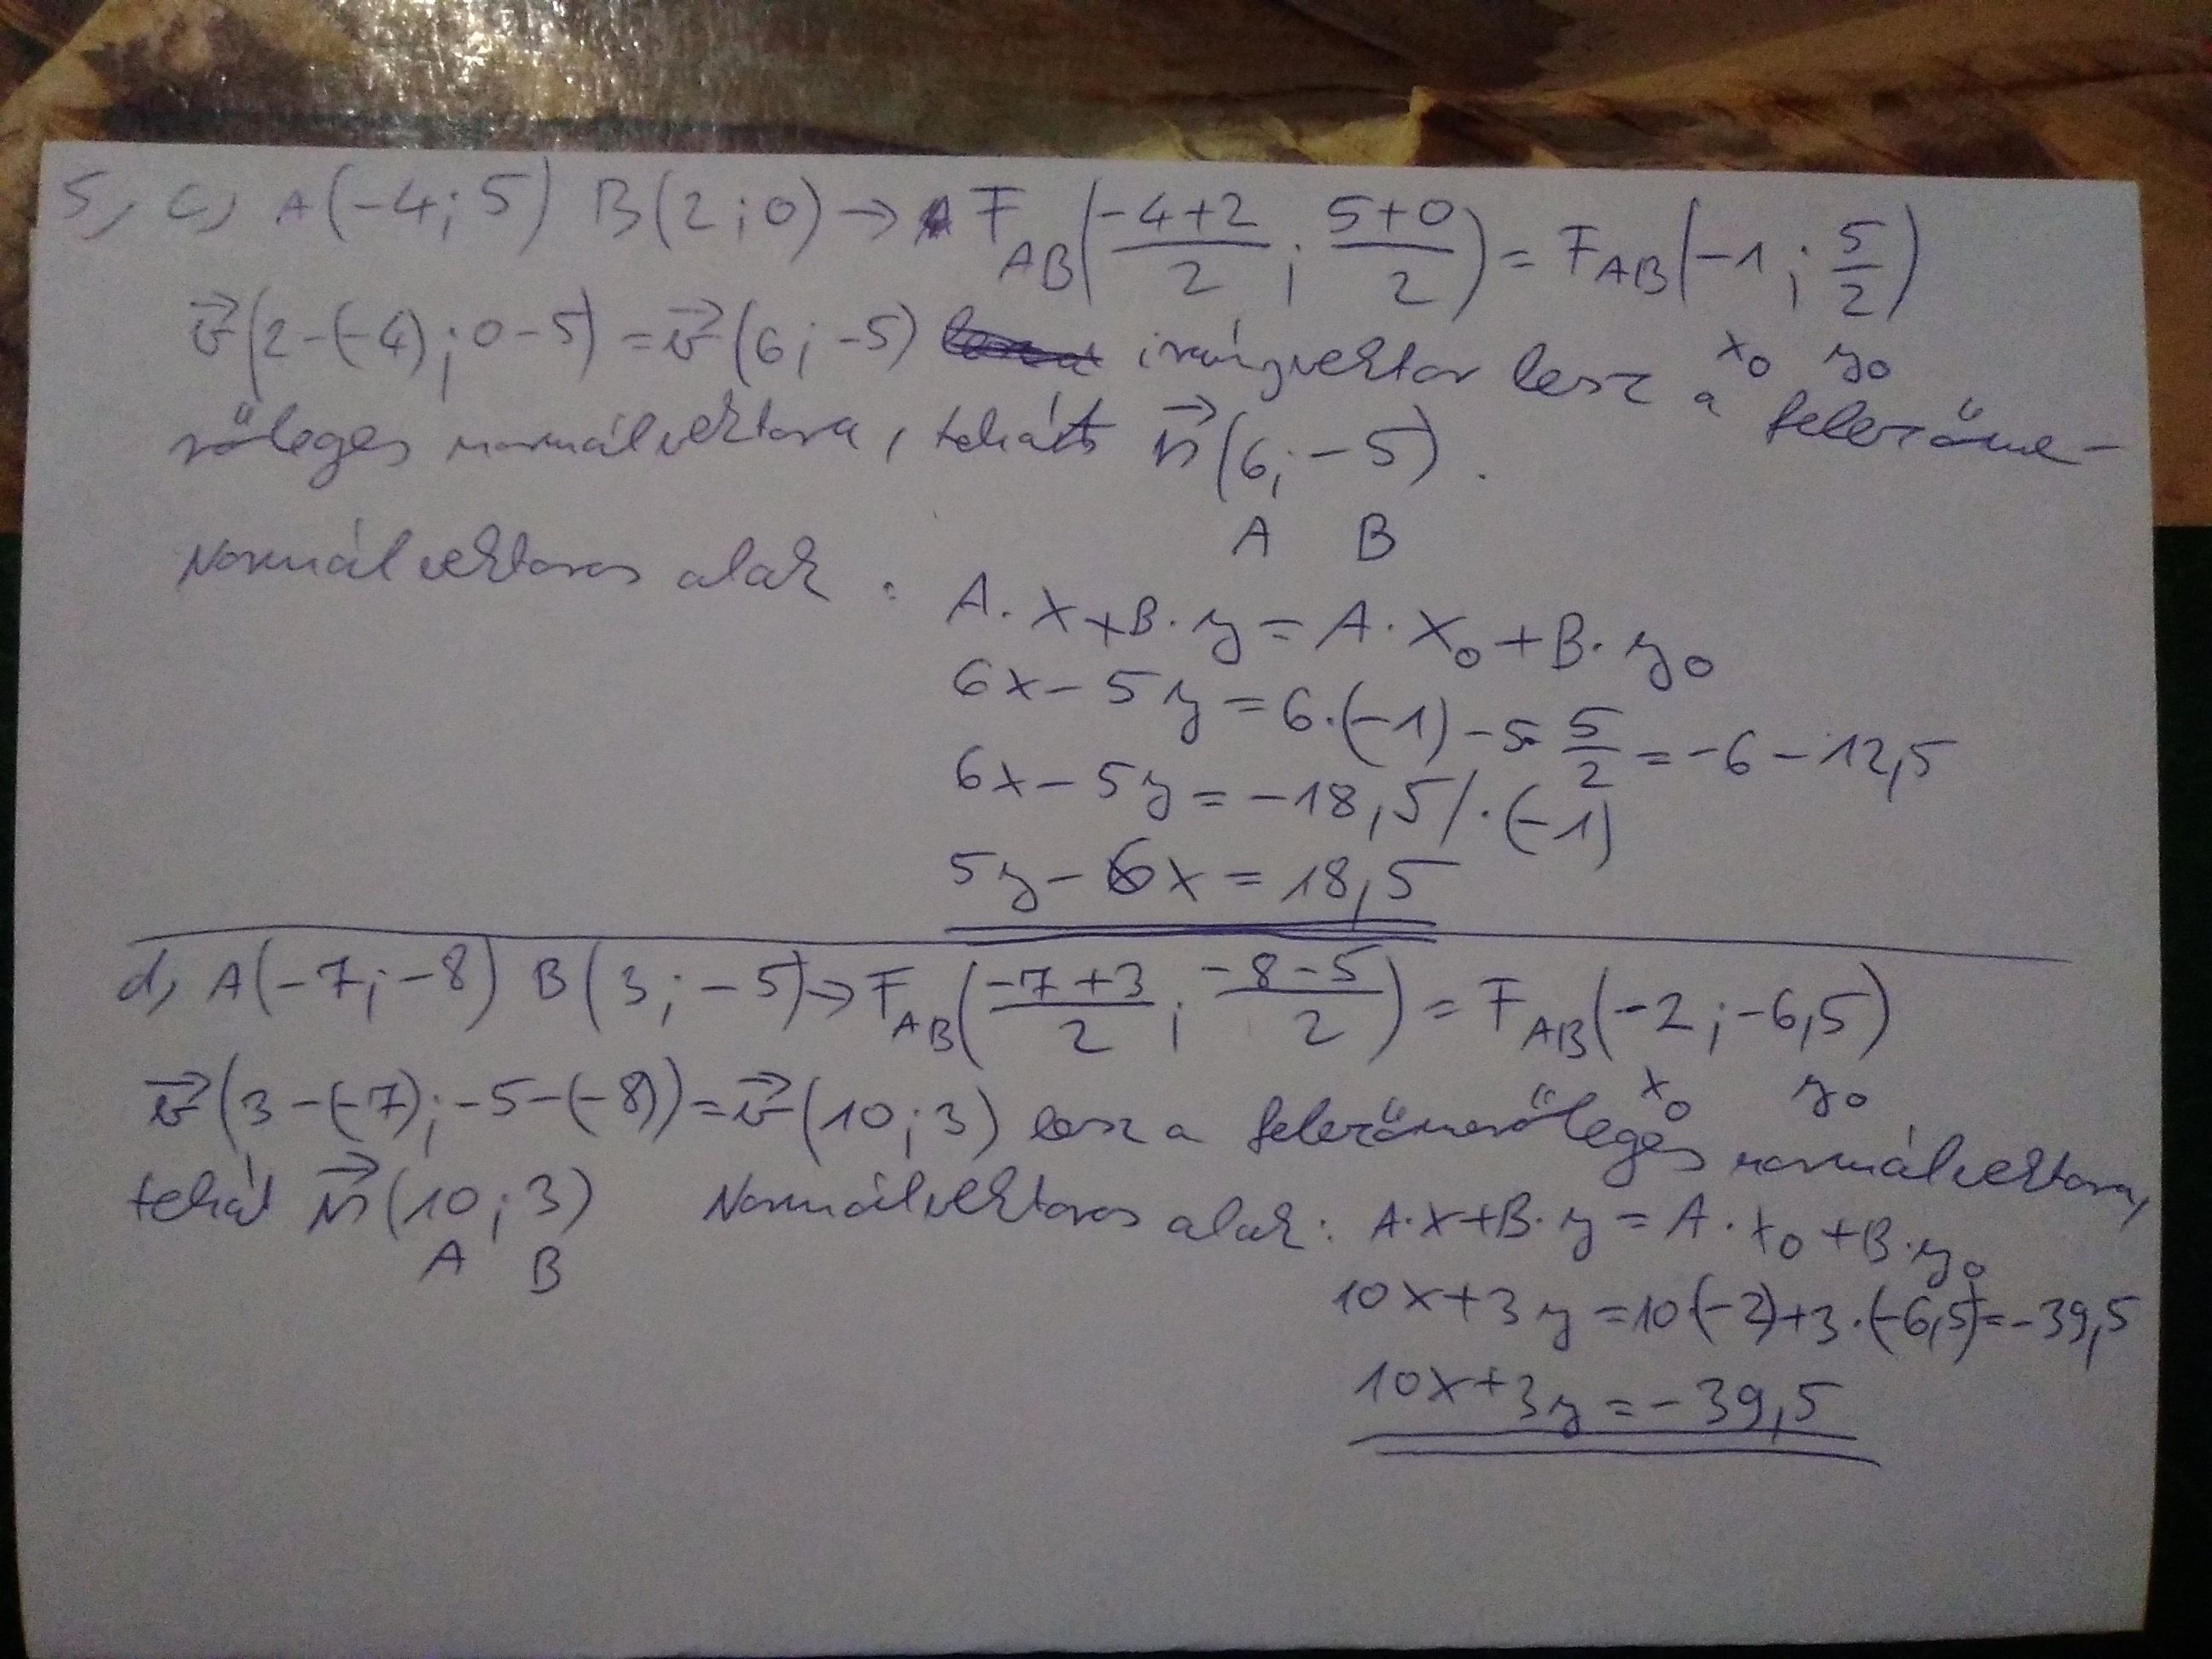 5, c, A(-4;5) B(2;0) → F_AB((-4+2)/2 ; (5+0)/2) = F_AB(-1 ; 5/2)
x₀ y₀
v⃗(2-(-4);0-5) = v⃗(6;-5) irányvektor lesz a felezőme-
rőleges normálvektora, tehát n⃗(6;-5).
A B
Normálvektoros alak: A·x+B·y=A·x₀+B·y₀
6x-5y=6·(-1)-5·5/2=-6-12,5
6x-5y=-18,5/·(-1)
5y-6x=18,5
d, A(-7;-8) B(3;-5)→F_AB((-7+3)/2 ; (-8-5)/2) = F_AB(-2;-6,5)
x₀ y₀
v⃗(3-(-7);-5-(-8))=v⃗(10;3) lesz a felezőmerőleges normálvektora,
tehát n⃗(10;3) Normálvektoros alak: A·x+B·y=A·x₀+B·y₀
A B
10x+3y=10(-2)+3·(-6,5)=-39,5
10x+3y=-39,5